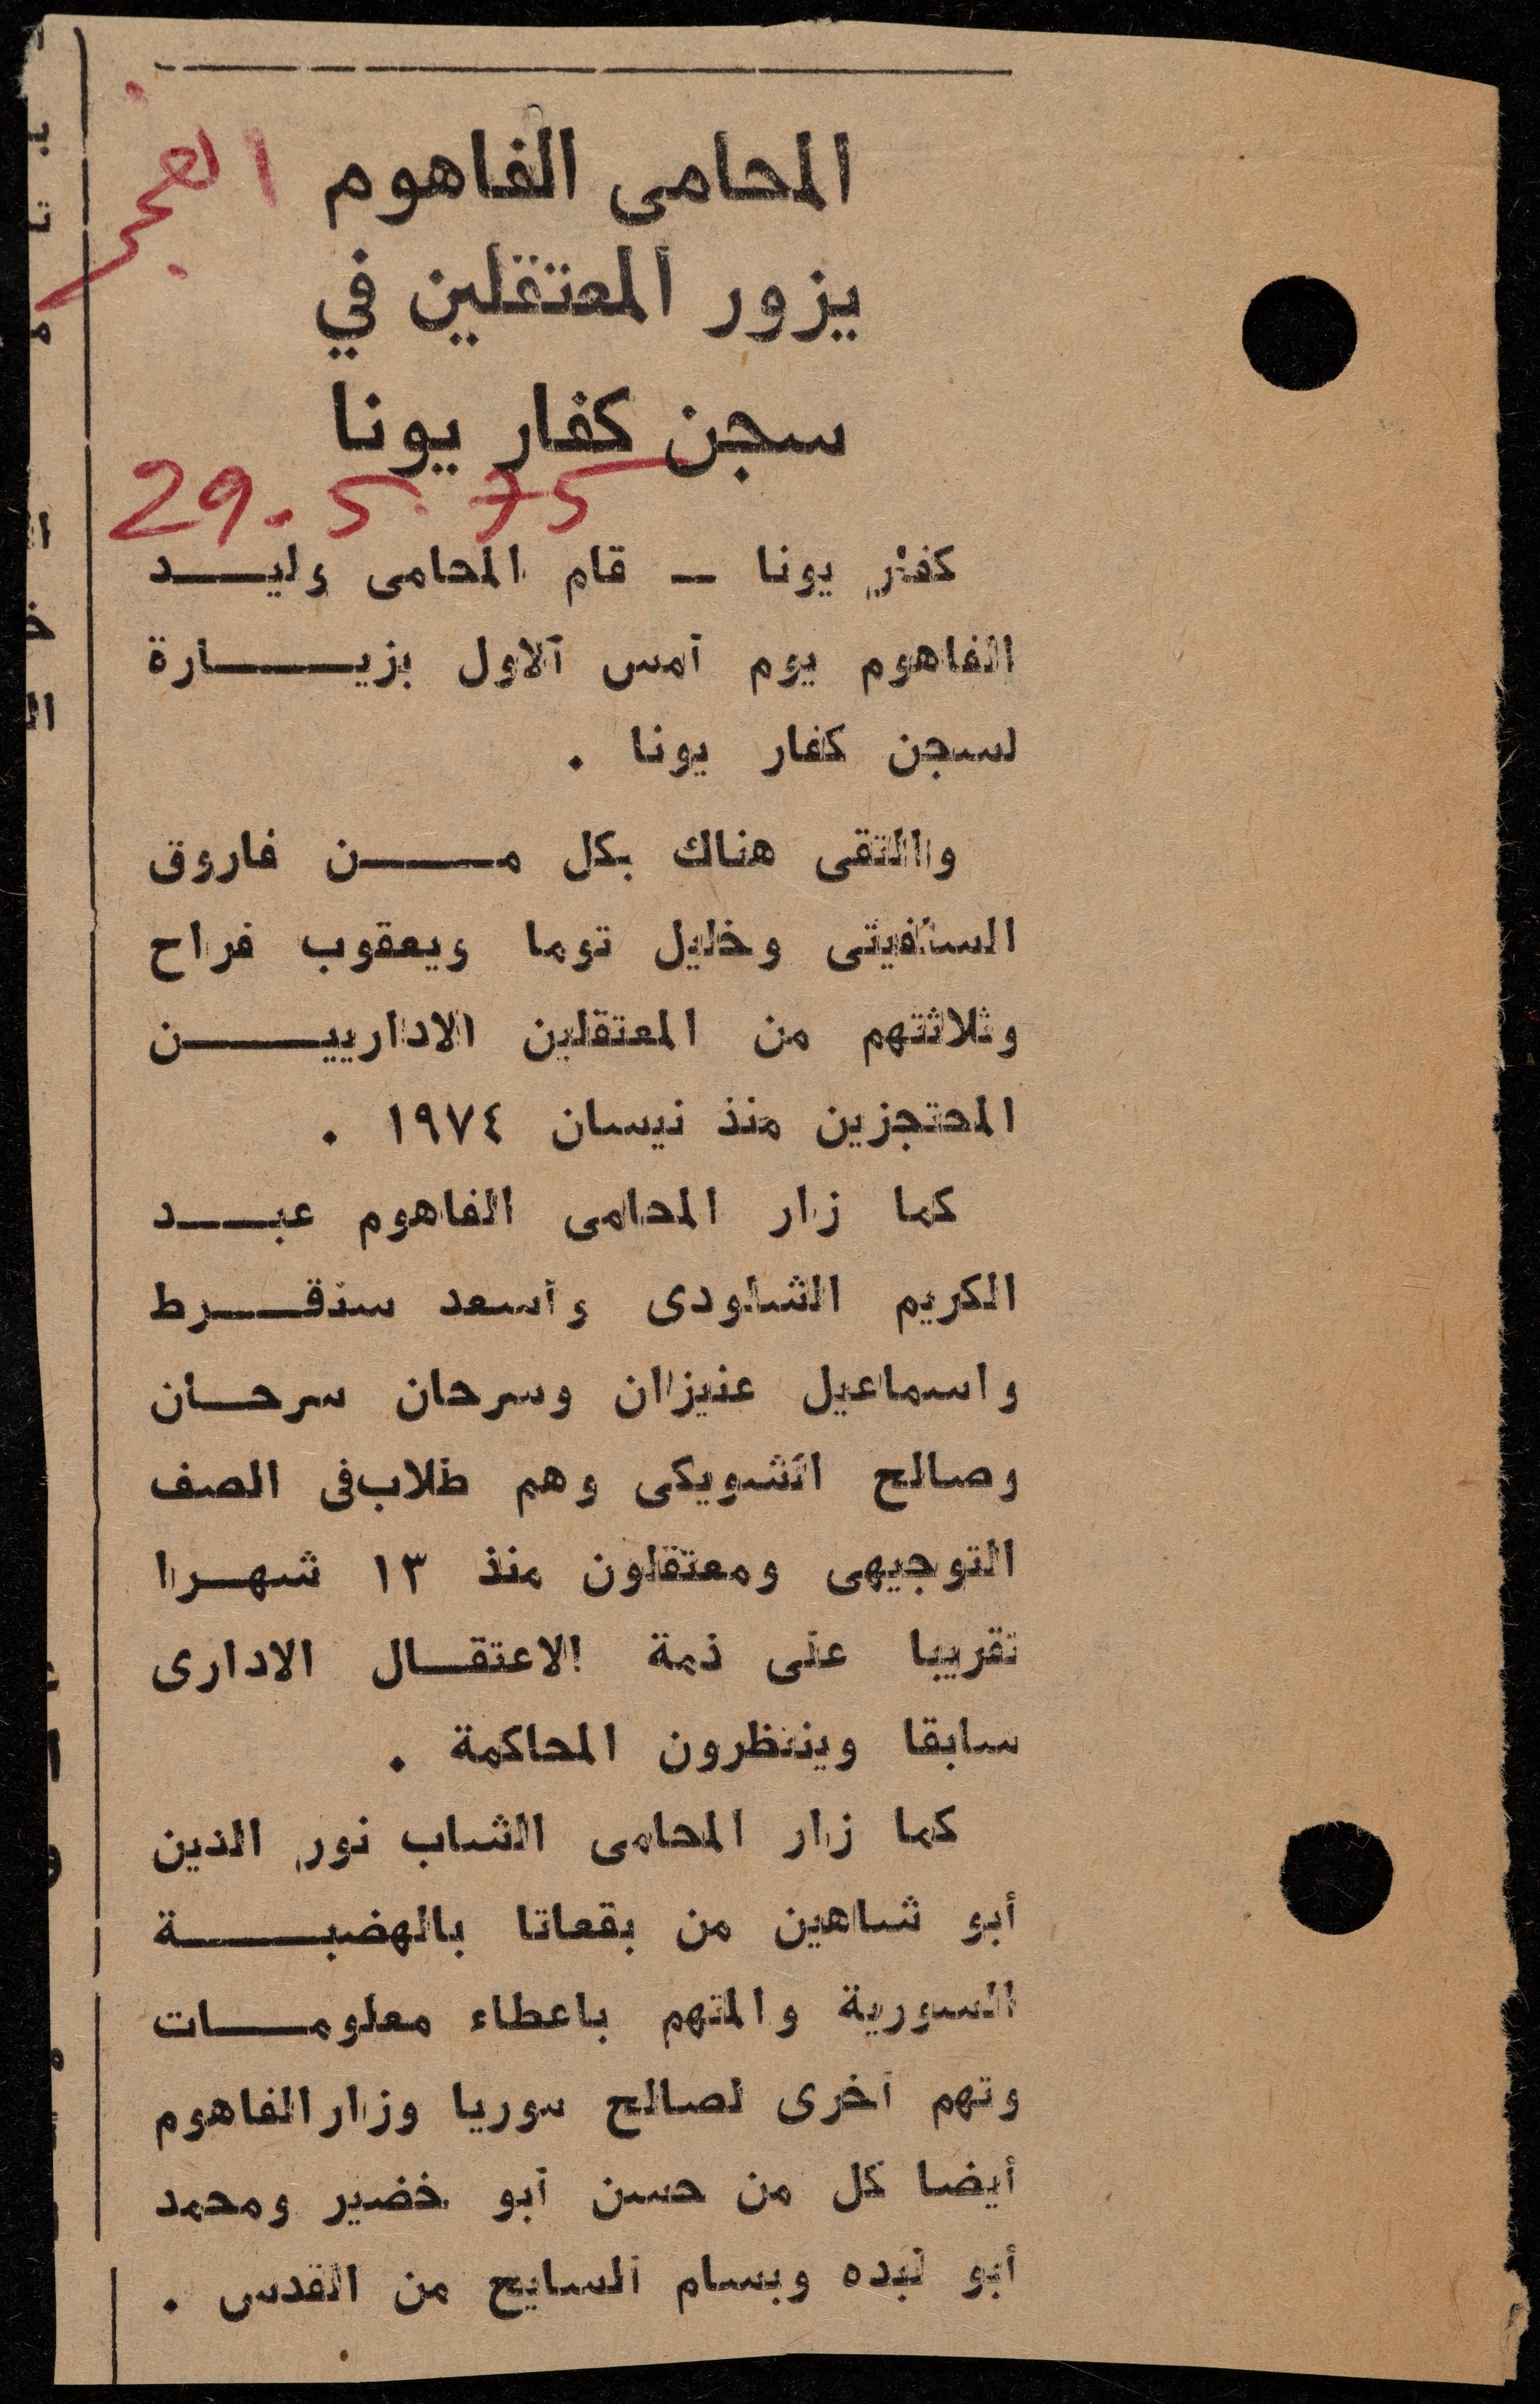 المحامى الفاهوم
الفجر
يزور المعتقلين في
سجن كفار يونا
29.5.75
كفار يونا — قام المحامى وليـــد
الفاهوم يوم أمس الاول بزيـــارة
لسجن كفار يونا .
واللتقى هناك بكل مـــن فاروق
السلفيتى وخليل توما ويعقوب فراح
وثلاثتهم من المعتقلين الاداريـــين
المحتجزين منذ نيسان ١٩٧٤ .
كما زار المحامى الفاهوم عبـــد
الكريم الشلودى وأسعد سنقـــرط
واسماعيل عنيزان وسرحان سرحـان
وصالح الشويكى وهم طلاب فى الصف
التوجيهى ومعتقلون منذ ١٣ شهـرا
تقريبا على ذمة الاعتقـــال الادارى
سابقا وينتظرون المحاكمة .
كما زار المحامى الشاب نور الدين
أبو شاهين من بقعاتا بالهضبـــة
السورية والمتهم باعطاء معلومـــات
وتهم أخرى لصالح سوريا وزار الفاهوم
أيضا كل من حسن أبو خضير ومحمد
أبو لبده وبسام السايح من القدس .